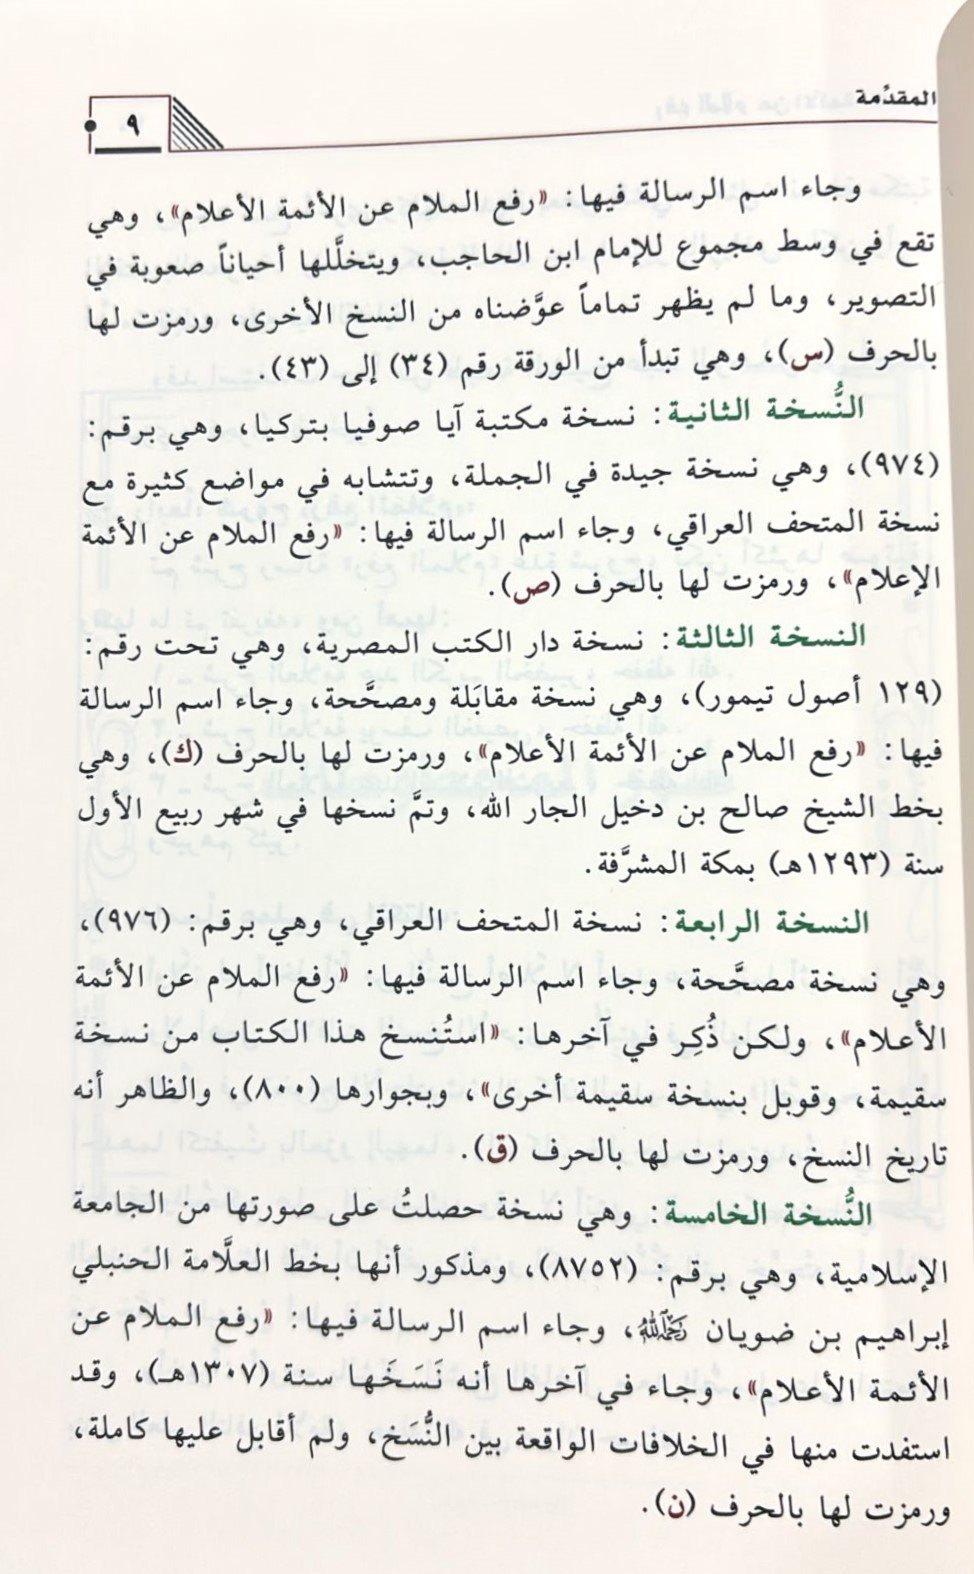 المقدِّمة
٩
وجاء اسم الرسالة فيها: «رفع الملام عن الأئمة الأعلام»، وهي
تقع في وسط مجموع للإمام ابن الحاجب، ويتخلَّلها أحياناً صعوبة في
التصوير، وما لم يظهر تماماً عوَّضناه من النسخ الأخرى، ورمزت لها
بالحرف (س)، وهي تبدأ من الورقة رقم (٣٤) إلى (٤٣).
النُّسخة الثانية: نسخة مكتبة آيا صوفيا بتركيا، وهي برقم:
(٩٧٤)، وهي نسخة جيدة في الجملة، وتتشابه في مواضع كثيرة مع
نسخة المتحف العراقي، وجاء اسم الرسالة فيها: «رفع الملام عن الأئمة
الإعلام»، ورمزت لها بالحرف (ص).
النسخة الثالثة: نسخة دار الكتب المصرية، وهي تحت رقم:
(١٢٩ أصول تيمور)، وهي نسخة مقابَلة ومصحَّحة، وجاء اسم الرسالة
فيها: «رفع الملام عن الأئمة الأعلام»، ورمزت لها بالحرف (ك)، وهي
بخط الشيخ صالح بن دخيل الجار الله، وتمَّ نسخها في شهر ربيع الأول
سنة (١٢٩٣هـ) بمكة المشرَّفة.
النسخة الرابعة: نسخة المتحف العراقي، وهي برقم: (٩٧٦)،
وهي نسخة مصحَّحة، وجاء اسم الرسالة فيها: «رفع الملام عن الأئمة
الأعلام»، ولكن ذُكِر في آخرها: «استُنسخ هذا الكتاب من نسخة
سقيمة، وقوبل بنسخة سقيمة أخرى»، وبجوارها (٨٠٠)، والظاهر أنه
تاريخ النسخ، ورمزت لها بالحرف (ق).
النُّسخة الخامسة: وهي نسخة حصلتُ على صورتها من الجامعة
الإسلامية، وهي برقم: (٨٧٥٢)، ومذكور أنها بخط العلَّامة الحنبلي
إبراهيم بن ضويان رحمه الله، وجاء اسم الرسالة فيها: «رفع الملام عن
الأئمة الأعلام»، وجاء في آخرها أنه نَسَخَها سنة (١٣٠٧هـ)، وقد
استفدت منها في الخلافات الواقعة بين النُّسَخ، ولم أقابل عليها كاملة،
ورمزت لها بالحرف (ن).